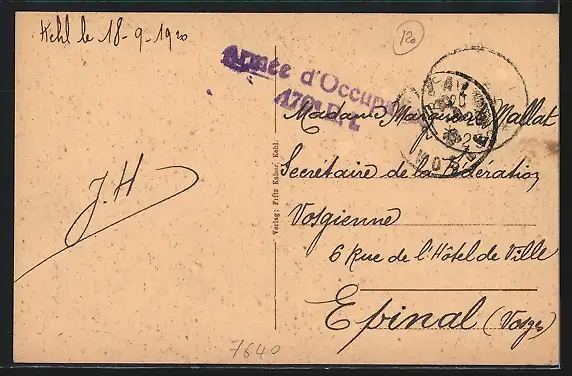 Kehl le 18-9-1920
120
Armée d'Occupa
170e R.I.
Madame Marguerite Mallat
Secretaire de la Fédération
Vosgienne
6 Rue de l'Hôtel de Ville
Epinal (Vosges)
J.H
Verlag: Fritz Kaiser, Kehl.
7640